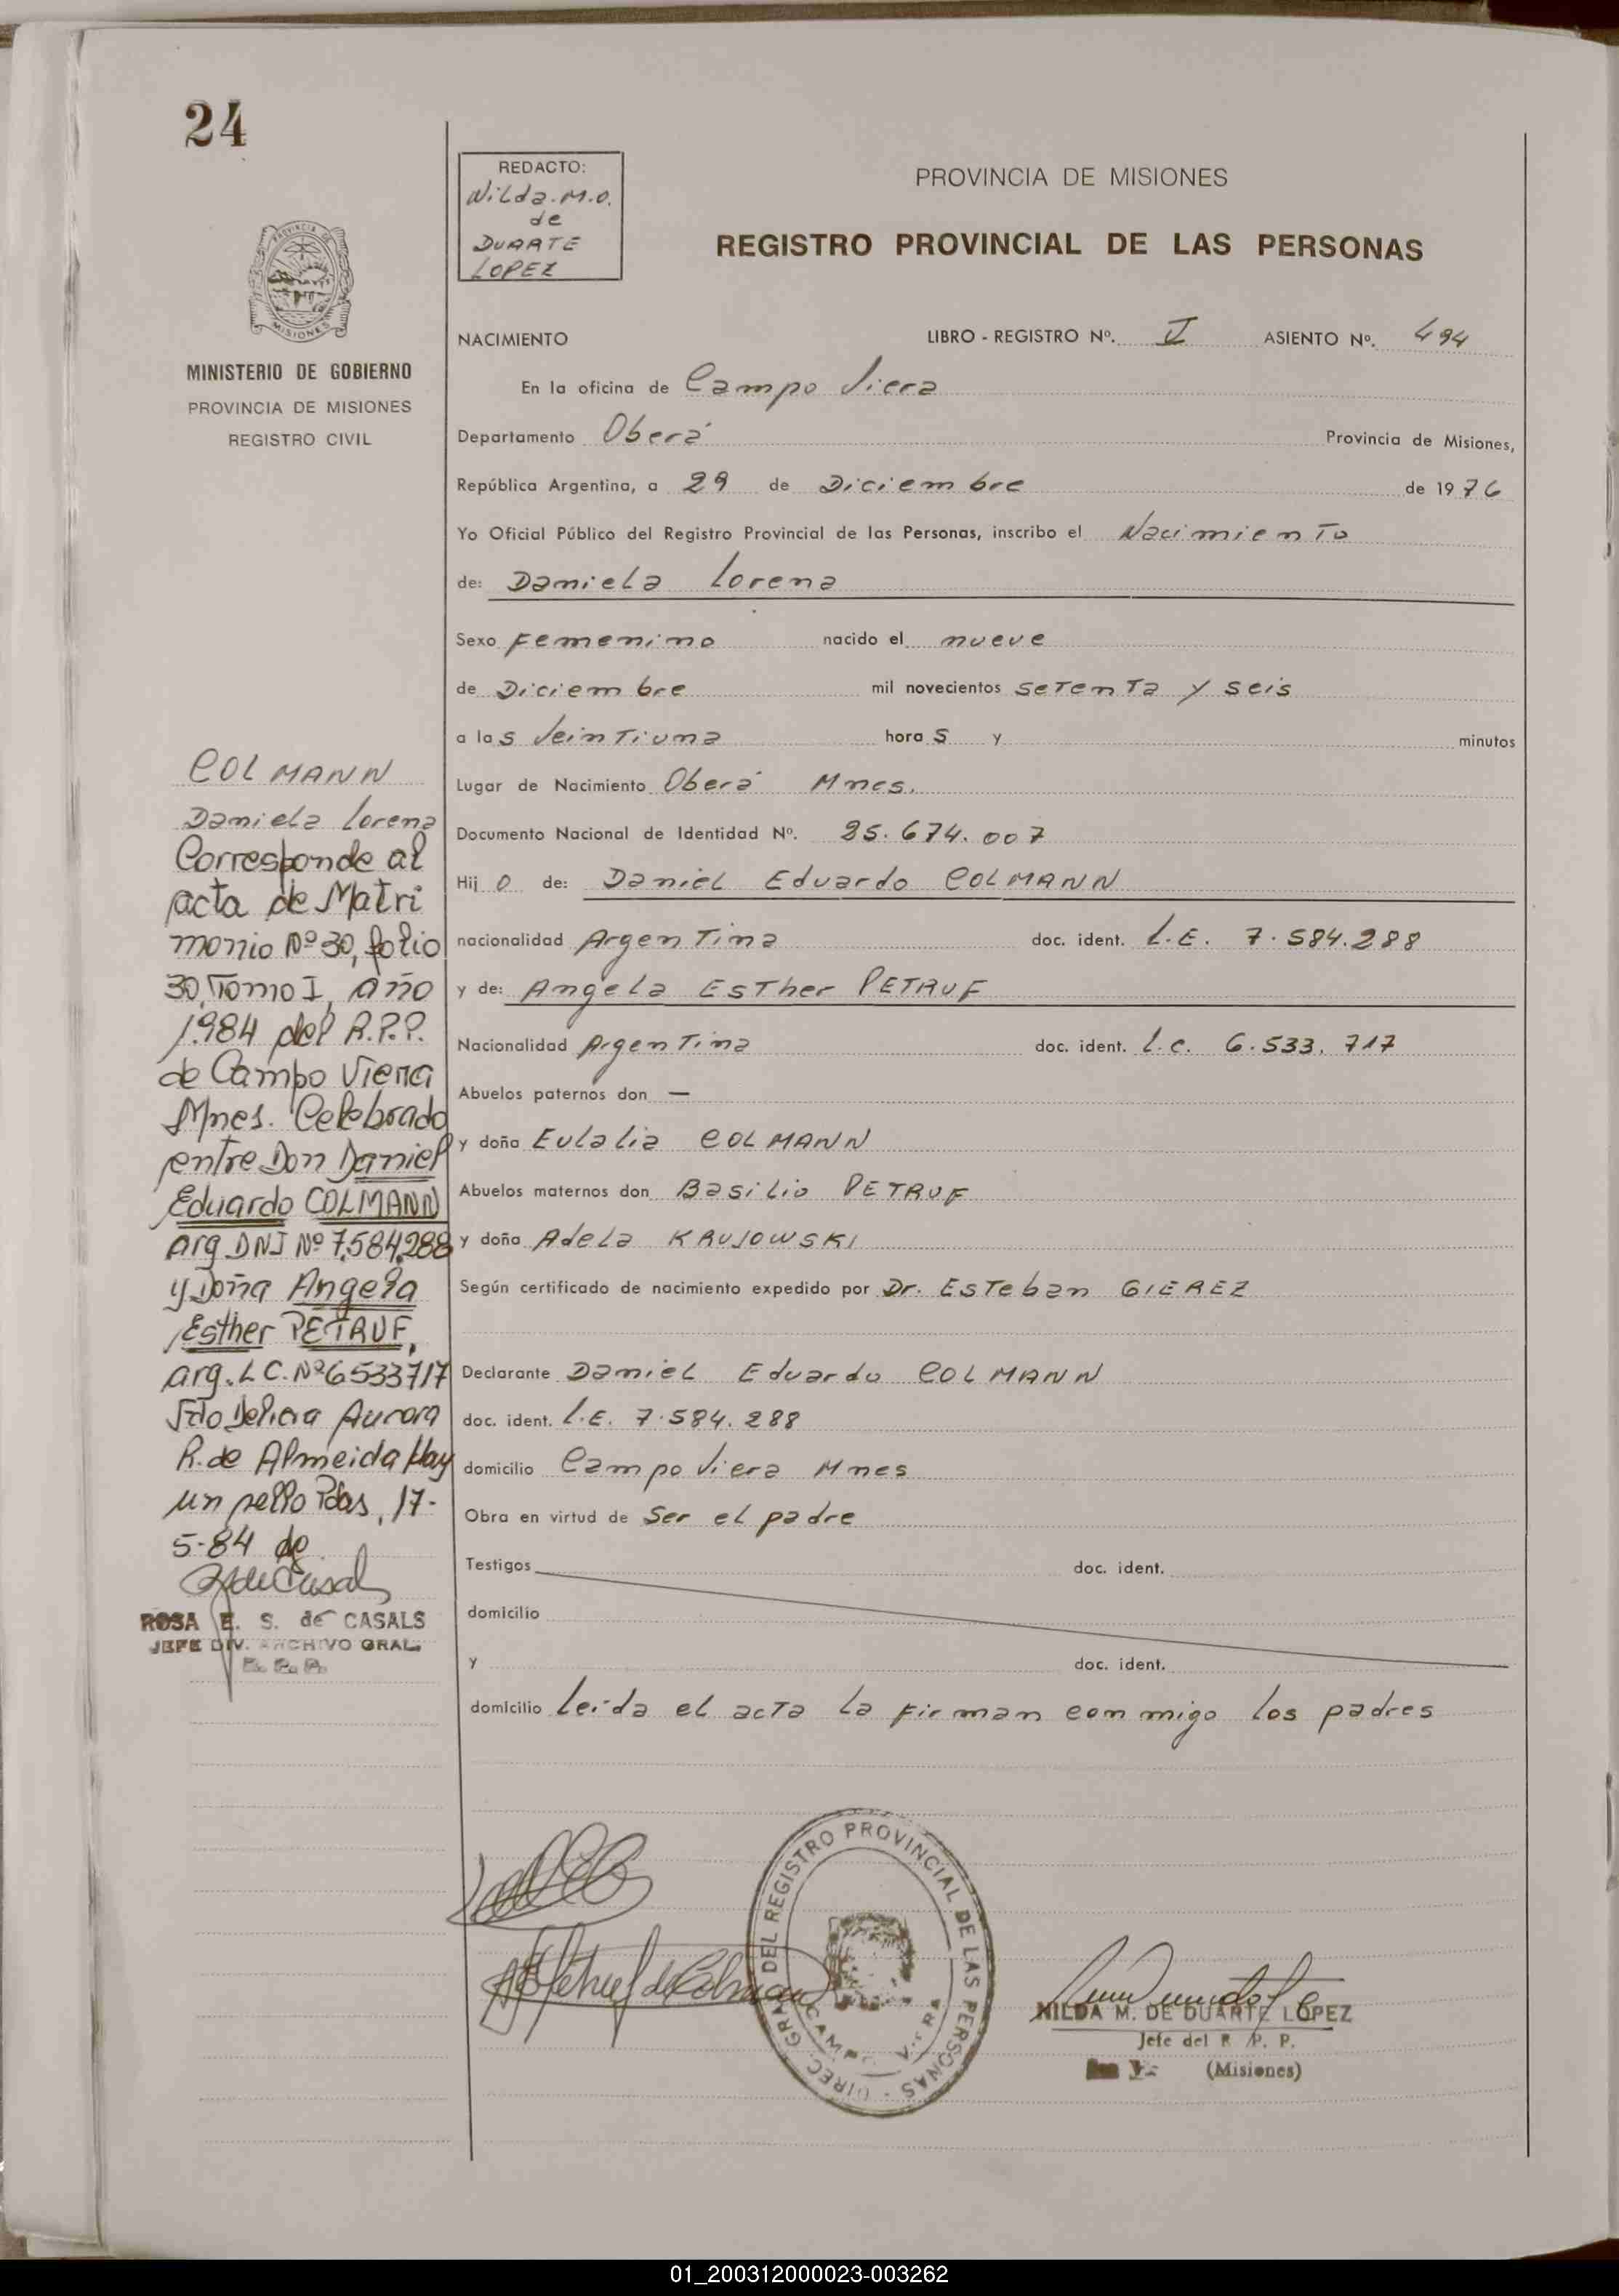 24
REDACTO:
Nilda. M.O.
de
DUARTE
LOPEZ
PROVINCIA DE MISIONES
REGISTRO PROVINCIAL DE LAS PERSONAS
MISIONES
MINISTERIO DE GOBIERNO
PROVINCIA DE MISIONES
REGISTRO CIVIL
NACIMIENTO LIBRO - REGISTRO Nº. V ASIENTO Nº. 494
En la oficina de Campo Viera
Departamento Oberá Provincia de Misiones,
República Argentina, a 29 de Diciembre de 1976
Yo Oficial Público del Registro Provincial de las Personas, inscribo el Nacimiento
de: Daniela Lorena
Sexo Femenino nacido el nueve
de Diciembre mil novecientos setenta y seis
a las Veintiuna horas y minutos
Lugar de Nacimiento Oberá Mnes.
Documento Nacional de Identidad Nº. 25.674.007
Hijo de: Daniel Eduardo COLMANN
nacionalidad Argentina doc. ident. L.E. 7.584.288
y de: Angela Esther PETRUF
Nacionalidad Argentina doc. ident. L.C. 6.533.717
Abuelos paternos don —
y doña Eulalia COLMANN
Abuelos maternos don Basilio PETRUF
y doña Adela KRUJOWSKI
Según certificado de nacimiento expedido por Dr. Esteban GIEREZ
Declarante Daniel Eduardo COLMANN
doc. ident. L.E. 7.584.288
domicilio Campo Viera Mnes
Obra en virtud de Ser el padre
Testigos doc. ident.
domicilio
y doc. ident.
domicilio leída el acta la firman conmigo los padres
COLMANN
Daniela Lorena
Corresponde al
acta de Matri
monio Nº 30, folio
30, Tomo I, año
1984 del R.P.P.
de Campo Viera
Mnes. Celebrado
entre Don Daniel
Eduardo COLMANN
arg. DNI Nº 7.584.288
y Doña Angela
Esther PETRUF,
arg. L C. Nº 6533717
Fdo Delicia Aurora
R. de Almeida Hay
un sello Pdas, 17-
5-84
ROSA E. S. de CASALS
JEFE DIV. ARCHIVO GRAL.
R. P. P.
DIREC. GRAL. DEL REGISTRO PROVINCIAL DE LAS PERSONAS
CAMPO VIERA
NILDA M. DE DUARTE LOPEZ
Jefe del R. P. P.
(Misiones)
01_200312000023-003262